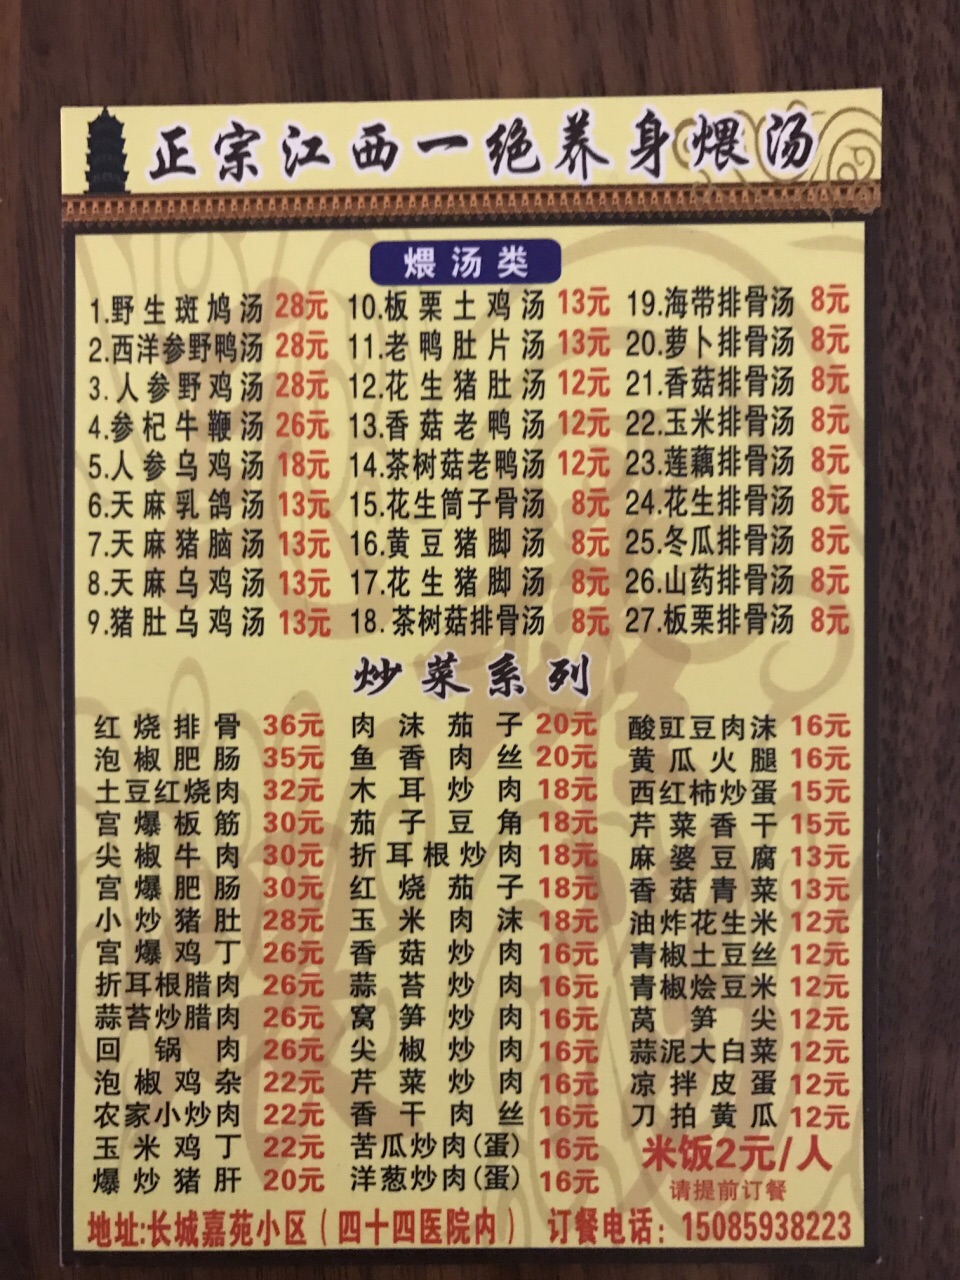 正宗江西一绝养身煨汤
煨汤类
1.野生斑鸠汤 28元
2.西洋参野鸭汤 28元
3.人参野鸡汤 28元
4.参杞牛鞭汤 26元
5.人参乌鸡汤 18元
6.天麻乳鸽汤 13元
7.天麻猪脑汤 13元
8.天麻乌鸡汤 13元
9.猪肚乌鸡汤 13元
10.板栗土鸡汤 13元
11.老鸭肚片汤 13元
12.花生猪肚汤 12元
13.香菇老鸭汤 12元
14.茶树菇老鸭汤 12元
15.花生筒子骨汤 8元
16.黄豆猪脚汤 8元
17.花生猪脚汤 8元
18.茶树菇排骨汤 8元
19.海带排骨汤 8元
20.萝卜排骨汤 8元
21.香菇排骨汤 8元
22.玉米排骨汤 8元
23.莲藕排骨汤 8元
24.花生排骨汤 8元
25.冬瓜排骨汤 8元
26.山药排骨汤 8元
27.板栗排骨汤 8元
炒菜系列
红烧排骨 36元
泡椒肥肠 35元
土豆红烧肉 32元
宫爆板筋 30元
尖椒牛肉 30元
宫爆肥肠 30元
小炒猪肚 28元
宫爆鸡丁 26元
折耳根腊肉 26元
蒜苔炒腊肉 26元
回锅肉 26元
泡椒鸡杂 22元
农家小炒肉 22元
玉米鸡丁 22元
爆炒猪肝 20元
肉沫茄子 20元
鱼香肉丝 20元
木耳炒肉 18元
茄子豆角 18元
折耳根炒肉 18元
红烧茄子 18元
玉米肉沫 18元
香菇炒肉 16元
蒜苔炒肉 16元
窝笋炒肉 16元
尖椒炒肉 16元
芹菜炒肉 16元
香干肉丝 16元
苦瓜炒肉(蛋) 16元
洋葱炒肉(蛋) 16元
酸豇豆肉沫 16元
黄瓜火腿 16元
西红柿炒蛋 15元
芹菜香干 15元
麻婆豆腐 13元
香菇青菜 13元
油炸花生米 12元
青椒土豆丝 12元
青椒烩豆米 12元
莴笋尖 12元
蒜泥大白菜 12元
凉拌皮蛋 12元
刀拍黄瓜 12元
米饭2元/人
请提前订餐
地址:长城嘉苑小区（四十四医院内） 订餐电话：15085938223